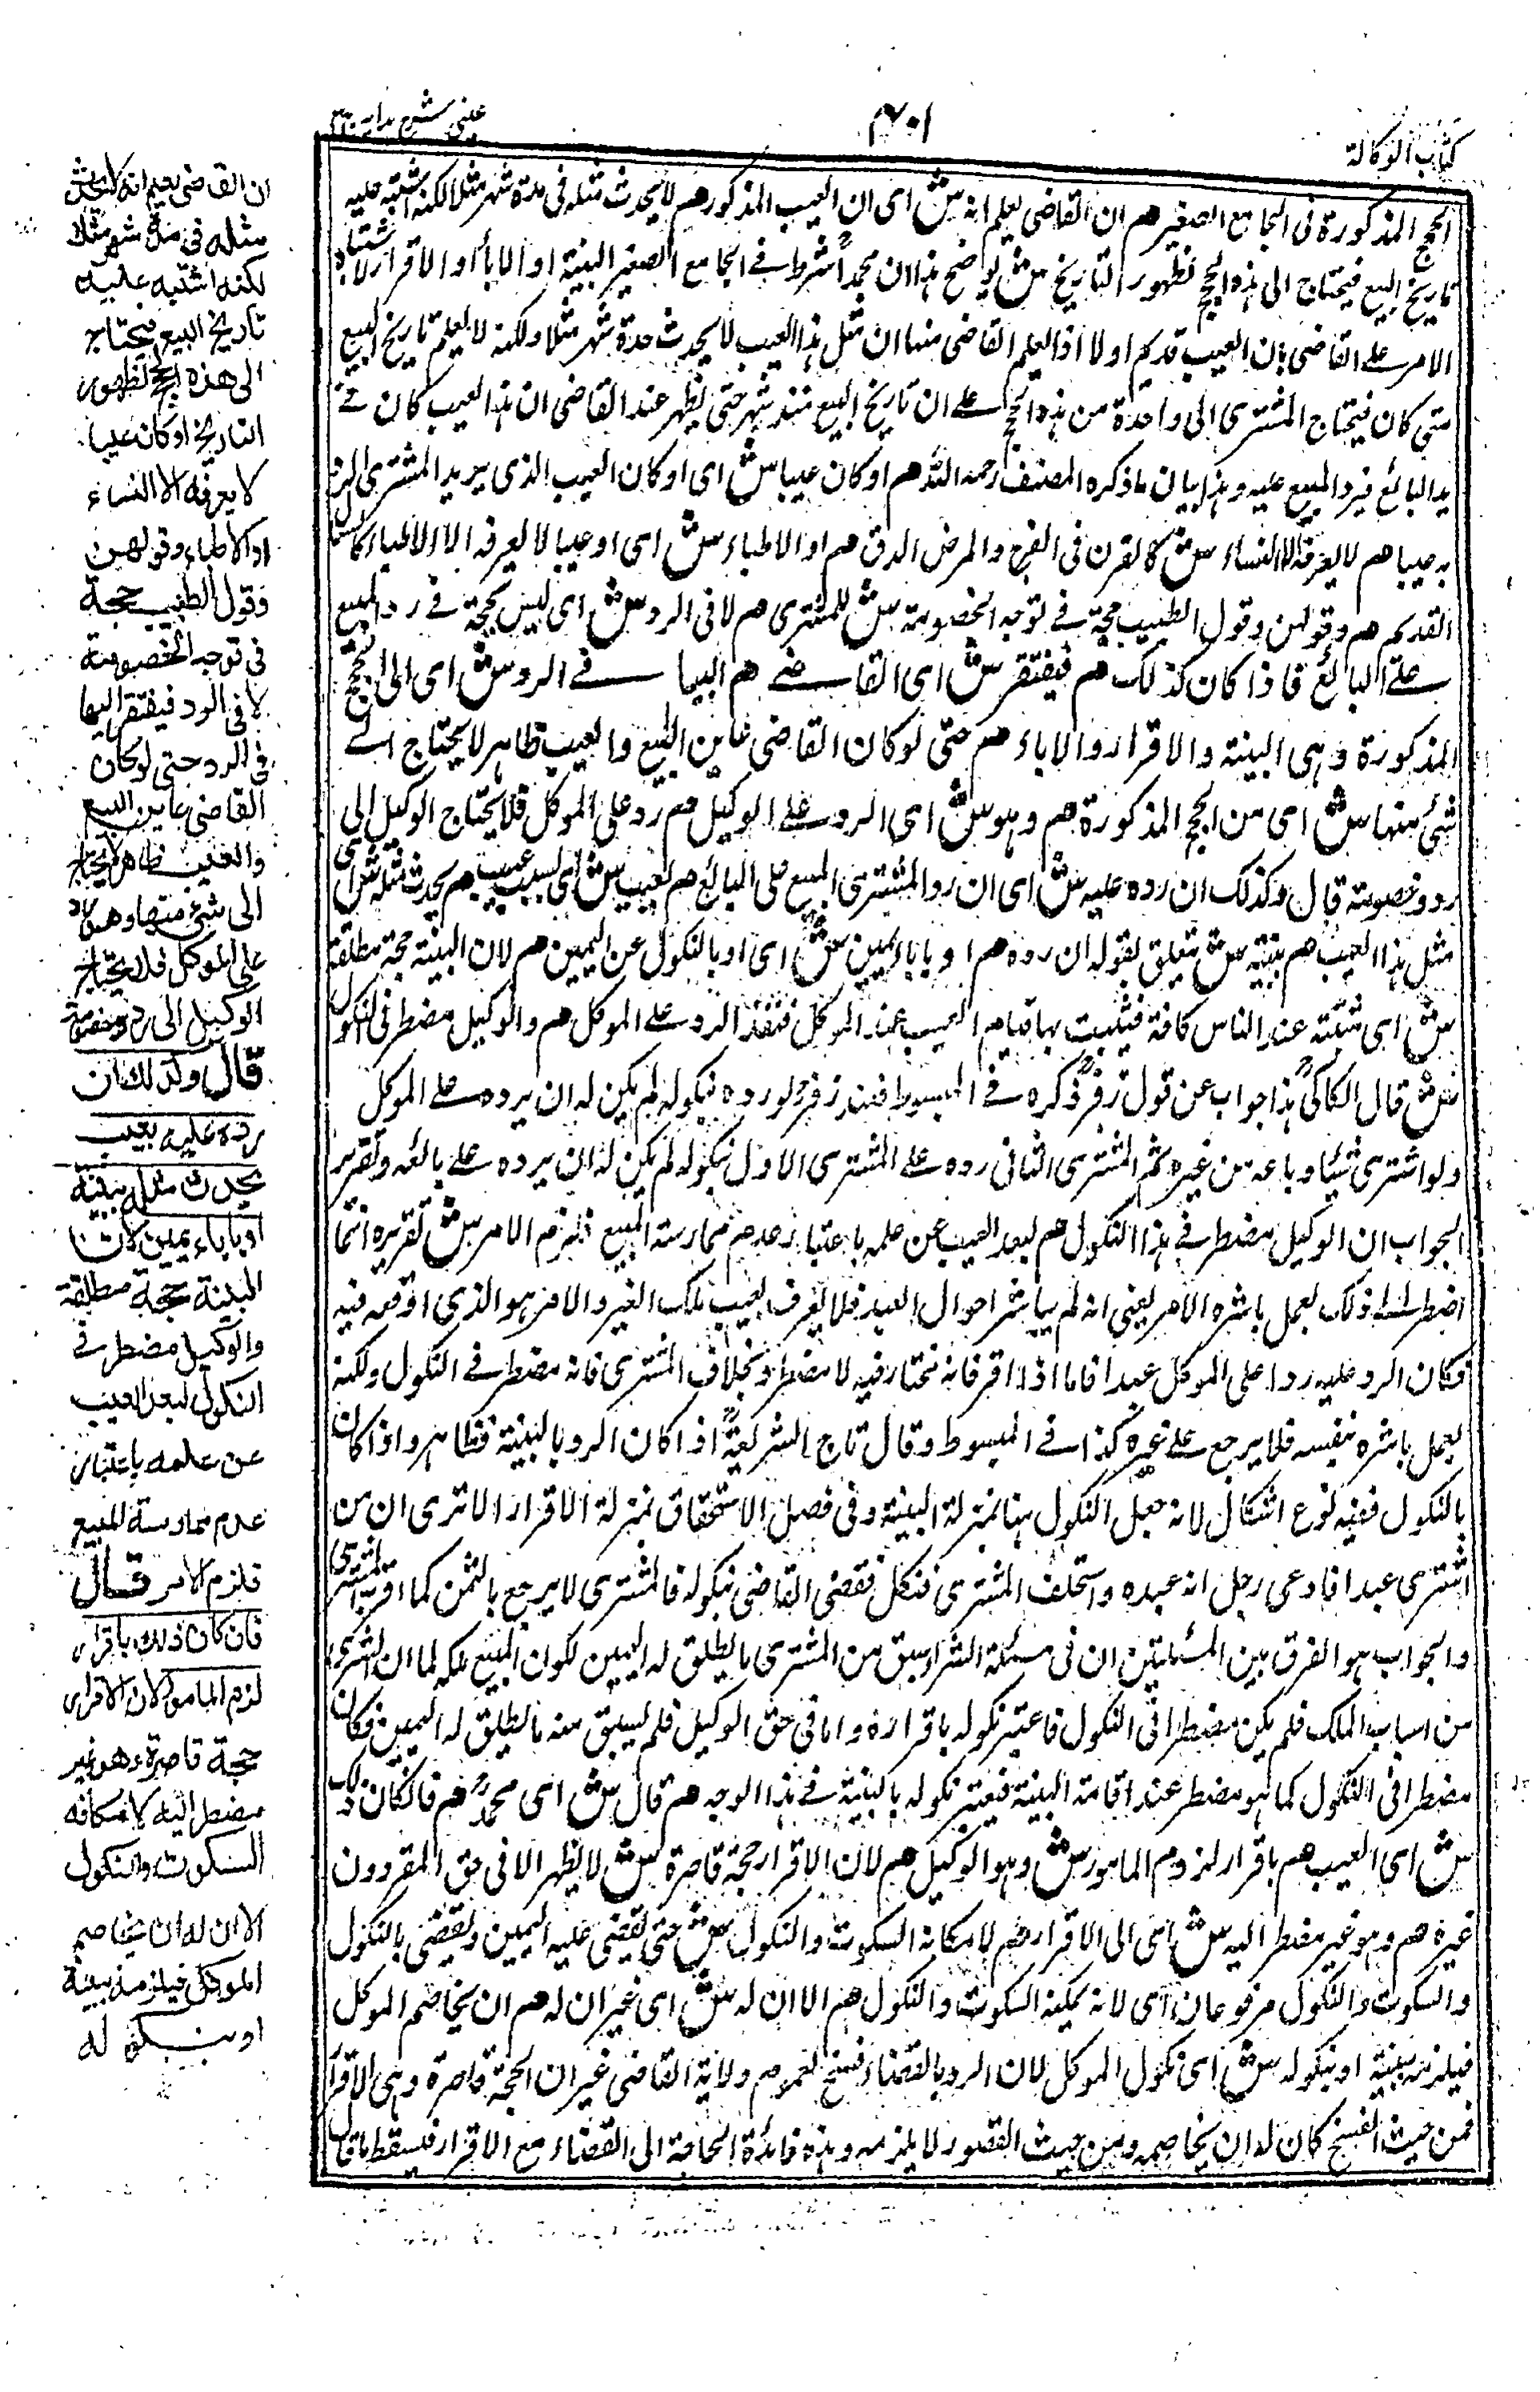 كتاب الوكالة
٧٠١
عينى شرح هداية ج٣
الحجج المذكورة فى الجامع الصغير هم ان القاضى يعلم انه ش اى ان العيب المذكور هم لا يحدث مثله فى مدة شهر مثلا لكنه اشتبه عليه
تاريخ البيع فيحتاج الى هذه الحجج لظهور التاريخ ش يوضح هذا ان محمدا شرط فى الجامع الصغير البينة او الاباء او الاقرار لاشتباه
الامر على القاضى بان العيب قديم اولا اذ العلم القاضى منها ان مثل هذا العيب لا يحدث مدة شهر مثلا ولكنه لا يعلم تاريخ البيع
متى كان فيحتاج المشترى الى واحدة من هذه الحجج على ان تاريخ البيع منذ شهر حتى يظهر عند القاضى ان هذا العيب كان فى
يد البائع فيرد المبيع عليه وهذا بيان ما ذكره المصنف رحمه الله هم او كان عيبا ش اى او كان العيب الذى يريد المشترى الرد
به عيبا هم لا يعرفه الا النساء ش كالقرن فى الفرج والمرض الدق هم او الاطباء ش اى او عيبا لا يعرفه الا الاطباء كالسعال
القديم هم وقولهن وقول الطبيب حجة فى توجه الخصومة ش للمشترى هم لا فى الرد ش اى ليس بحجة فى رد المبيع
على البائع فاذا كان كذلك هم فيفتقر ش اى القاضى هم اليها فى الرد ش اى الى الحجج
المذكورة وهى البينة والاقرار والاباء هم حتى لو كان القاضى عاين البيع والعيب ظاهر لا يحتاج الى
شئ منها ش اى من الحجج المذكورة هم وهو ش اى الرد على الوكيل هم رد على الموكل فلا يحتاج الوكيل الى
رد وخصومة قال وكذلك ان رده عليه ش اى ان رد المشترى المبيع على البائع هم بعيب ش اى بسبب عيب هم يحدث مثله ش اى
مثل هذا العيب هم ببينة ش يتعلق بقوله ان رده هم او باباء اليمين ش اى او بالنكول عن اليمين هم لان البينة حجة مطلقة
ش اى مثبتة عند الناس كافة فيثبت بها قيام العيب عند الموكل فنفذ الرد على الموكل هم والوكيل مضطر فى النكول
ش قال الكاكى هذا جواب عن قول زفر ذكره فى المبسوط فعند زفر لو رده بنكوله لم يكن له ان يرده على الموكل
ولو اشترى شيئا وباعه من غيره ثم المشترى الثانى رده على المشترى الاول بنكوله لم يكن له ان يرده على بائعه وتقرير
الجواب ان الوكيل مضطر فى هذا النكول هم لبعد العيب عن علمه باعتبار عدم ممارسته المبيع فلزم الامر ش تقريره انما
اضطر الى ذلك بعمل باشره الآمر يعنى انه لم يباشر احوال العبد فلا يعرف لعيب ملك الغير والآمر هو الذى اوقعه فيه
فكان الرد عليه ردا على الموكل عبدا فاما اذا اقر فانه مختار فيه لا مضطر وبخلاف المشترى فانه مضطر فى النكول ولكنه
لعمل باشره بنفسه فلا يرجع على غيره كذا فى المبسوط وقال تاج الشريعة اذا كان الرد بالبينة فظاهر واذا كان
بالنكول ففيه نوع اشكال لانه جعل النكول ههنا بمنزلة البينة وفى فصل الاستحقاق بمنزلة الاقرار الا ترى ان من
اشترى عبدا فادعى رجل انه عبده واستحلف المشترى فنكل فقضى القاضى بنكوله فالمشترى لا يرجع بالثمن كما اقر به المشترى
والجواب هو الفرق بين المسئلتين ان فى مسئلة الشراء سبق من المشترى ما يطلق له اليمين لكون المبيع ملكه لما ان الشراء
من اسباب الملك فلم يكن مضطرا فى النكول فاعتبر نكوله باقراره واما فى حق الوكيل فلم يسبق منه ما يطلق له اليمين فكان
مضطرا فى النكول كما هو مضطر عند اقامة البينة فيعتبر نكوله بالبينة فى هذا الوجه هم قال ش اى محمد هم فان كان ذلك
ش اى العيب هم باقرار لزوم المامور ش وهو الوكيل هم لان الاقرار حجة قاصرة ش لا يظهر الا فى حق المقر دون
غيره هم وهو غير مضطر اليه ش اى الى الاقرار هم لامكانه السكوت والنكول ش حتى يقضى عليه اليمين ويقضى بالنكول
والسكوت والنكول مرفوعان اى لانه يمكنه السكوت والنكول هم الا ان له ش اى غير ان له هم ان يخاصم الموكل
فيلزمه ببينة او بنكوله ش اى نكول الموكل لان الرد بالقضاء فسخ لعموم ولاية القاضى غير ان الحجة قاصرة وهى الاقرار
فمن حيث الفسخ كان له ان يخاصمه ومن حيث القصور لا يلزمه وهذه فائدة الحاجة الى القضاء مع الاقرار فيسقط ما قال
ان القاضى يعلم انه لا يحدث
مثله فى مدة شهر مثلا
لكنه اشتبه عليه
تاريخ البيع فيحتاج
الى هذه الحجج لظهور
التاريخ او كان عيبا
لا يعرفه الا النساء
او الاطباء وقولهن
وقول الطبيب حجة
فى توجه الخصومة
لا فى الرد فيفتقر اليها
فى الرد حتى لو كان
القاضى عاين البيع
والعيب ظاهر لا يحتاج
الى شئ منها وهو رد
على الموكل فلا يحتاج
الوكيل الى رد وخصومة
قال وكذلك ان
رده عليه بعيب
يحدث مثله ببينة
او باباء يمين لان
البينة حجة مطلقة
والوكيل مضطر فى
النكول لبعد العيب
عن علمه باعتبار
عدم ممارسته المبيع
فلزم الامر قال
فان كان ذلك باقرار
لزم المامور لان الاقرار
حجة قاصرة وهو غير
مضطر اليه لامكانه
السكوت والنكول
الا ان له ان يخاصم
الموكل فيلزمه ببينة
او بنكوله